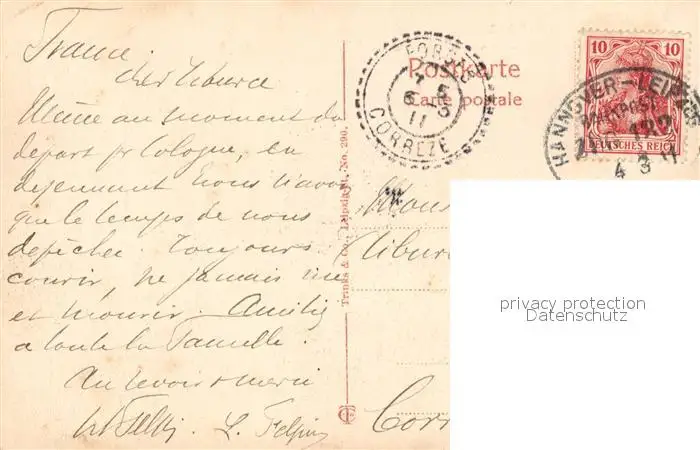 France.
cher Tiburce
au moment du
départ pr Cologne, en
dejeunant nous n'avons
que le temps de nous
depêcher. Toujours
courir, ne jamais
et mourir. Amitiés
a toute la famille.
Au revoir + merci
L.
Postkarte
Carte postale
CORRÈZE
11
10 10
DEUTSCHES REICH
HANNOVER-LEIPZIG
BAHNPOST
ZUG 182
4 3 11
Trinks & Co., Leipzig, No. 290.
Mons
Tibur
Corr
privacy protection
Datenschutz